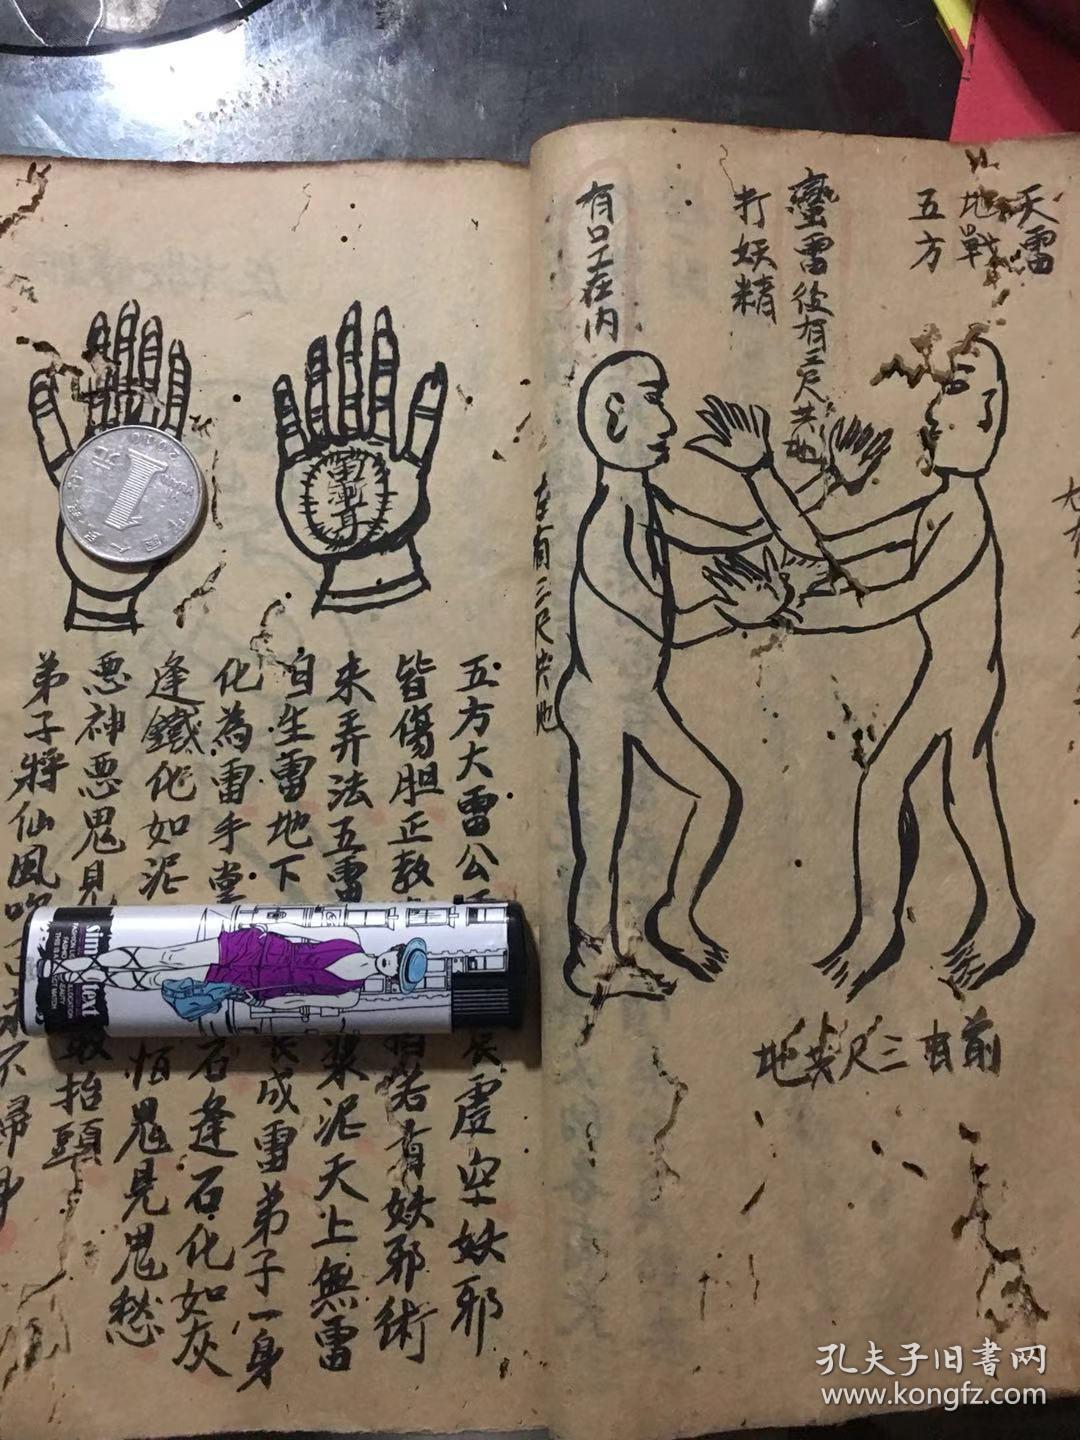 天雷
地戰
五方
蠻雷後有三尺共地
打妖精
有口工在内
左有三尺共地
前有三尺共地
五方大雷公
震空妖邪
皆傷胆正教
指若有妖邪術
来弄法五雷
漿泥天上無雷
自生雷地下
長成雷弟子一身
化為雷手掌
石逢石化如灰
逢鐵化如泥
怕鬼見鬼愁
悪神悪鬼見
敢抬頭
弟子將仙風吹
不歸身
雷
1
2000
sim
text
孔夫子旧書网
www.kongfz.com